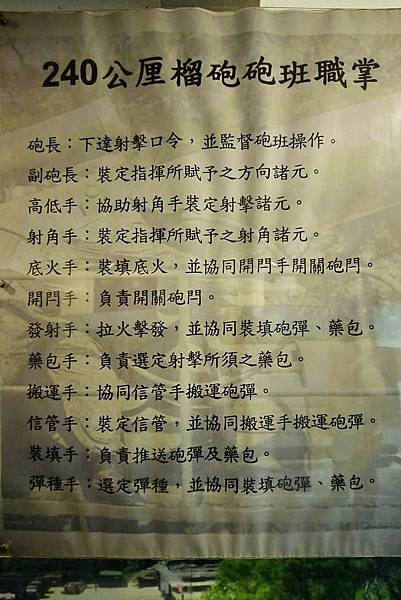 240公厘榴砲砲班職掌
砲長：下達射擊口令，並監督砲班操作。
副砲長：裝定指揮所賦予之方向諸元。
高低手：協助射角手裝定射擊諸元。
射角手：裝定指揮所賦予之射角諸元。
底火手：裝填底火，並協同開閂手開關砲閂。
開閂手：負責開關砲閂。
發射手：拉火擊發，並協同裝填砲彈、藥包。
藥包手：負責選定射擊所須之藥包。
搬運手：協同信管手搬運砲彈。
信管手：裝定信管，並協同搬運手搬運砲彈。
裝填手：負責推送砲彈及藥包。
彈種手：選定彈種，並協同裝填砲彈、藥包。